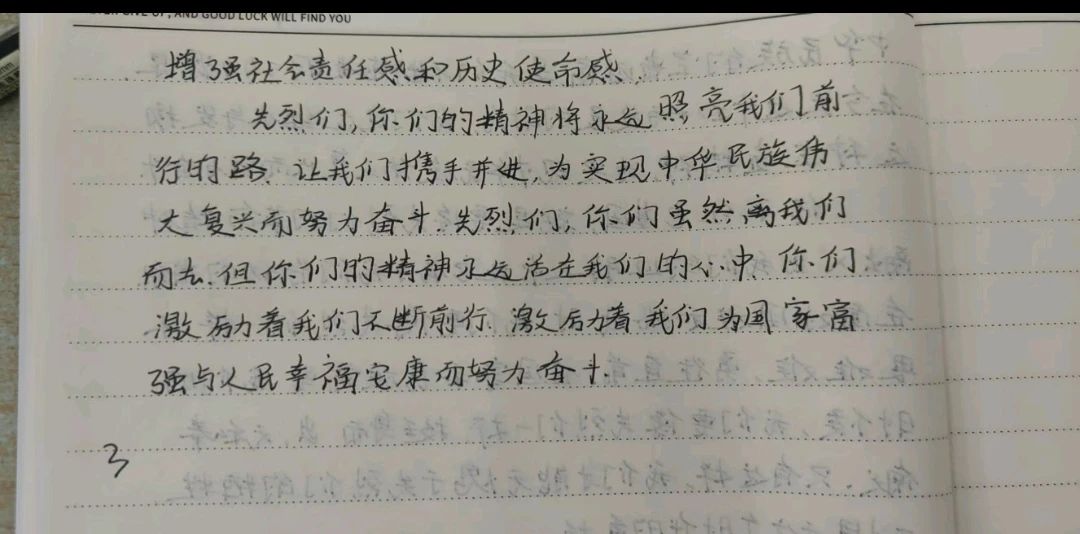 NEVER GIVE UP, AND GOOD LUCK WILL FIND YOU
增强社会责任感和历史使命感.
先烈们,你们的精神将永远照亮我们前
行的路.让我们携手并进,为实现中华民族伟
大复兴而努力奋斗.先烈们,你们虽然离我们
而去.但你们的精神永远活在我们的心中.你们
激励着我们不断前行.激励着我们为国家富
强与人民幸福安康而努力奋斗.
3